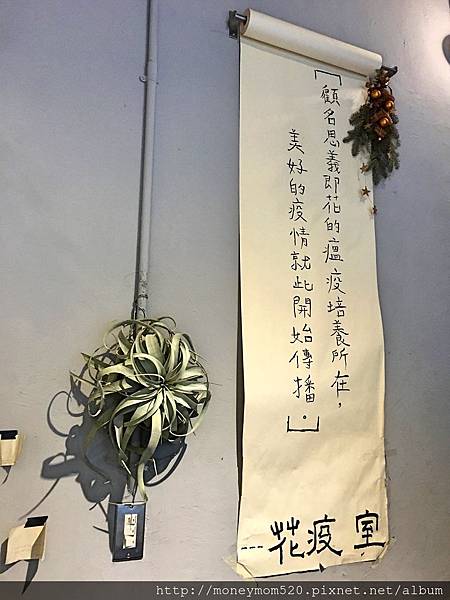 「顧名思義即花的瘟疫培養所在，
美好的疫情就此開始傳播．」
---花疫室
http://moneymom520.pixnet.net/album